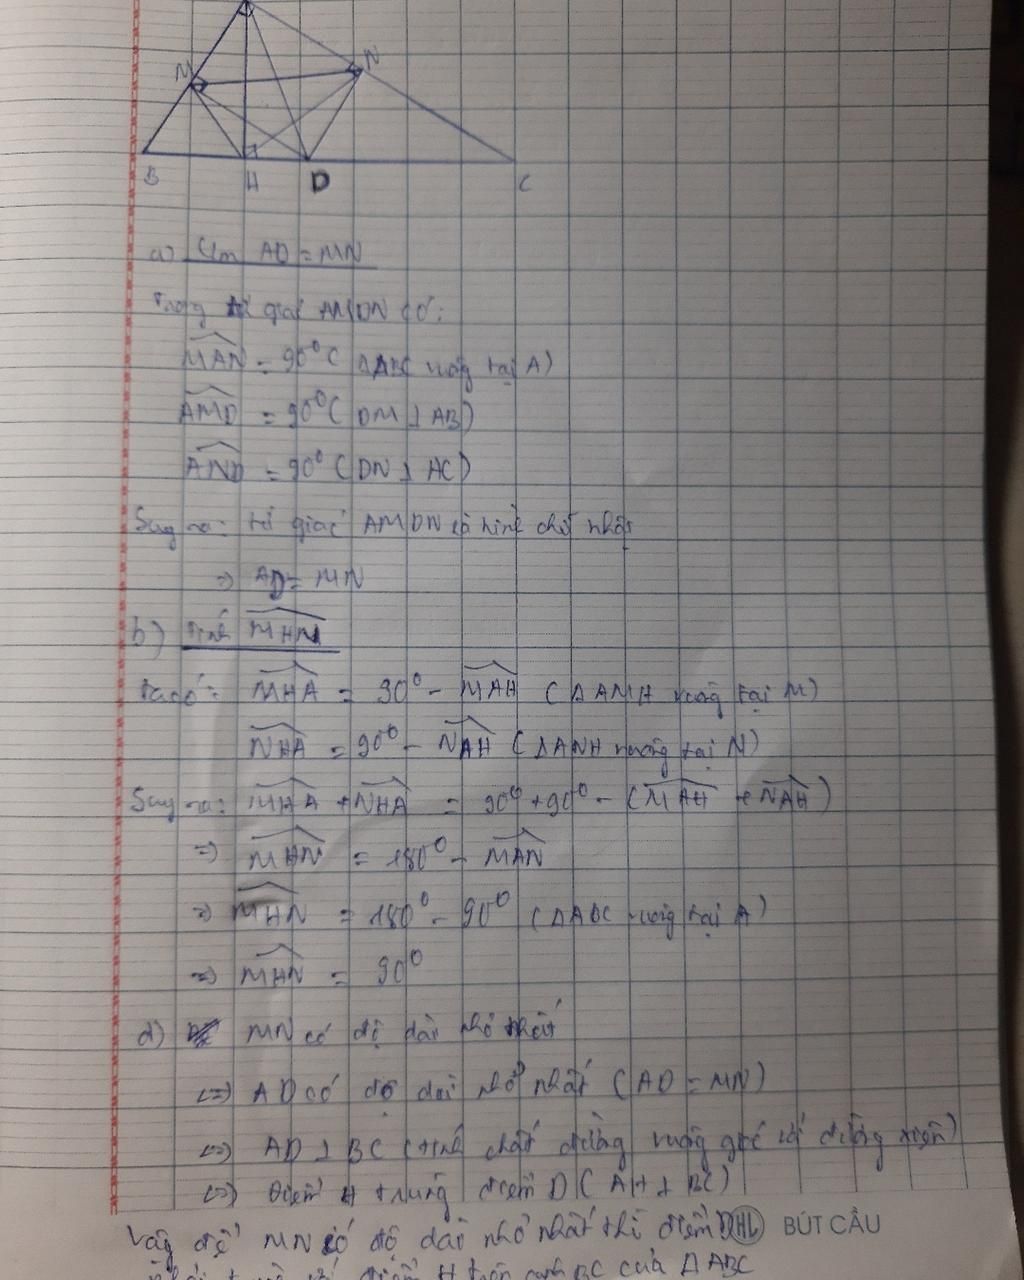 M
N
B
H
D
C
a) Cm AD = MN
Trong tứ giác AMDN có:
MAN = 90° (ΔABC vuông tại A)
AMD = 90° (DM ⊥ AB)
AND = 90° (DN ⊥ AC)
Suy ra: tứ giác AMDN là hình chữ nhật
=> AD = MN
b) Tính MHN
Ta có: MHA = 90° - MAH (ΔAMH vuông tại M)
NHA = 90° - NAH (ΔANH vuông tại N)
Suy ra: MHA + NHA = 90° + 90° - (MAH + NAH)
=> MHN = 180° - MAN
=> MHN = 180° - 90° (ΔABC vuông tại A)
=> MHN = 90°
d) MN có độ dài nhỏ nhất
<=> AD có độ dài nhỏ nhất (AD = MN)
<=> AD ⊥ BC (tính chất đường vuông góc với đường xiên)
<=> Điểm H trùng điểm D (AH ⊥ BC)
Vậy để MN có độ dài nhỏ nhất thì điểm D
HL BÚT CẦU
điểm H trên cạnh BC của ΔABC